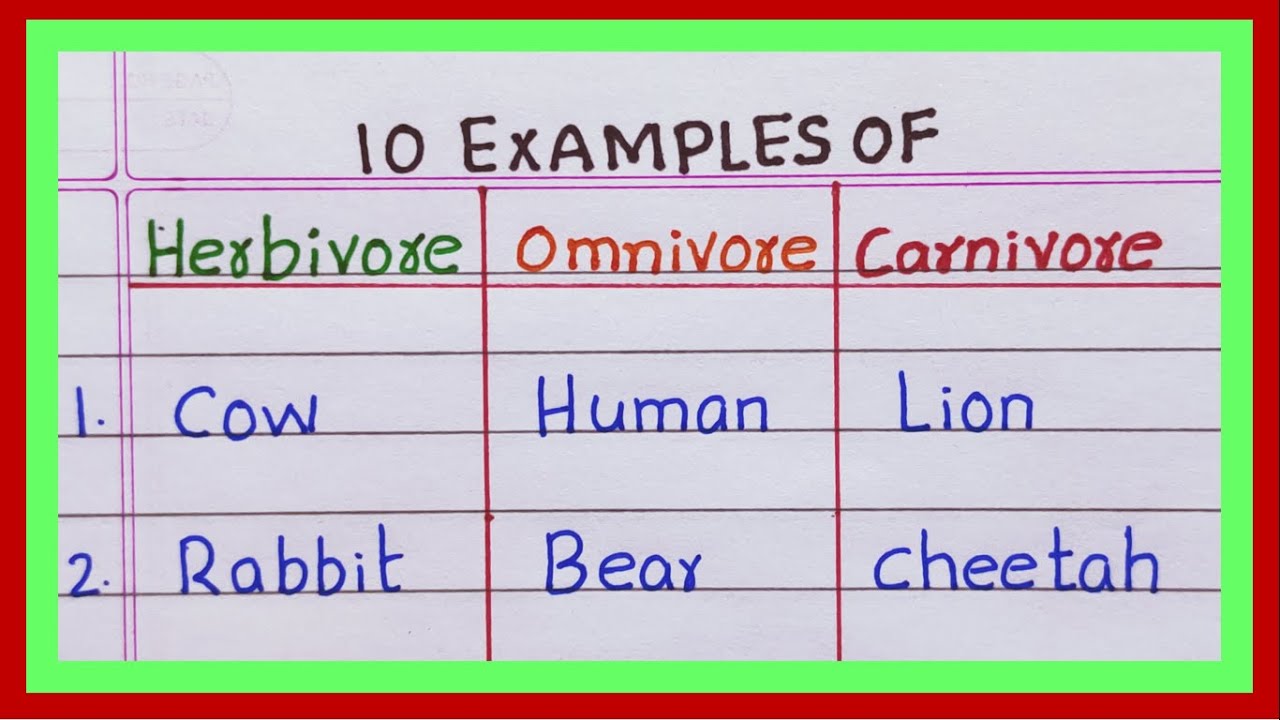 10 EXAMPLES OF
Herbivore Omnivore Carnivore
1. Cow Human Lion
2. Rabbit Bear cheetah